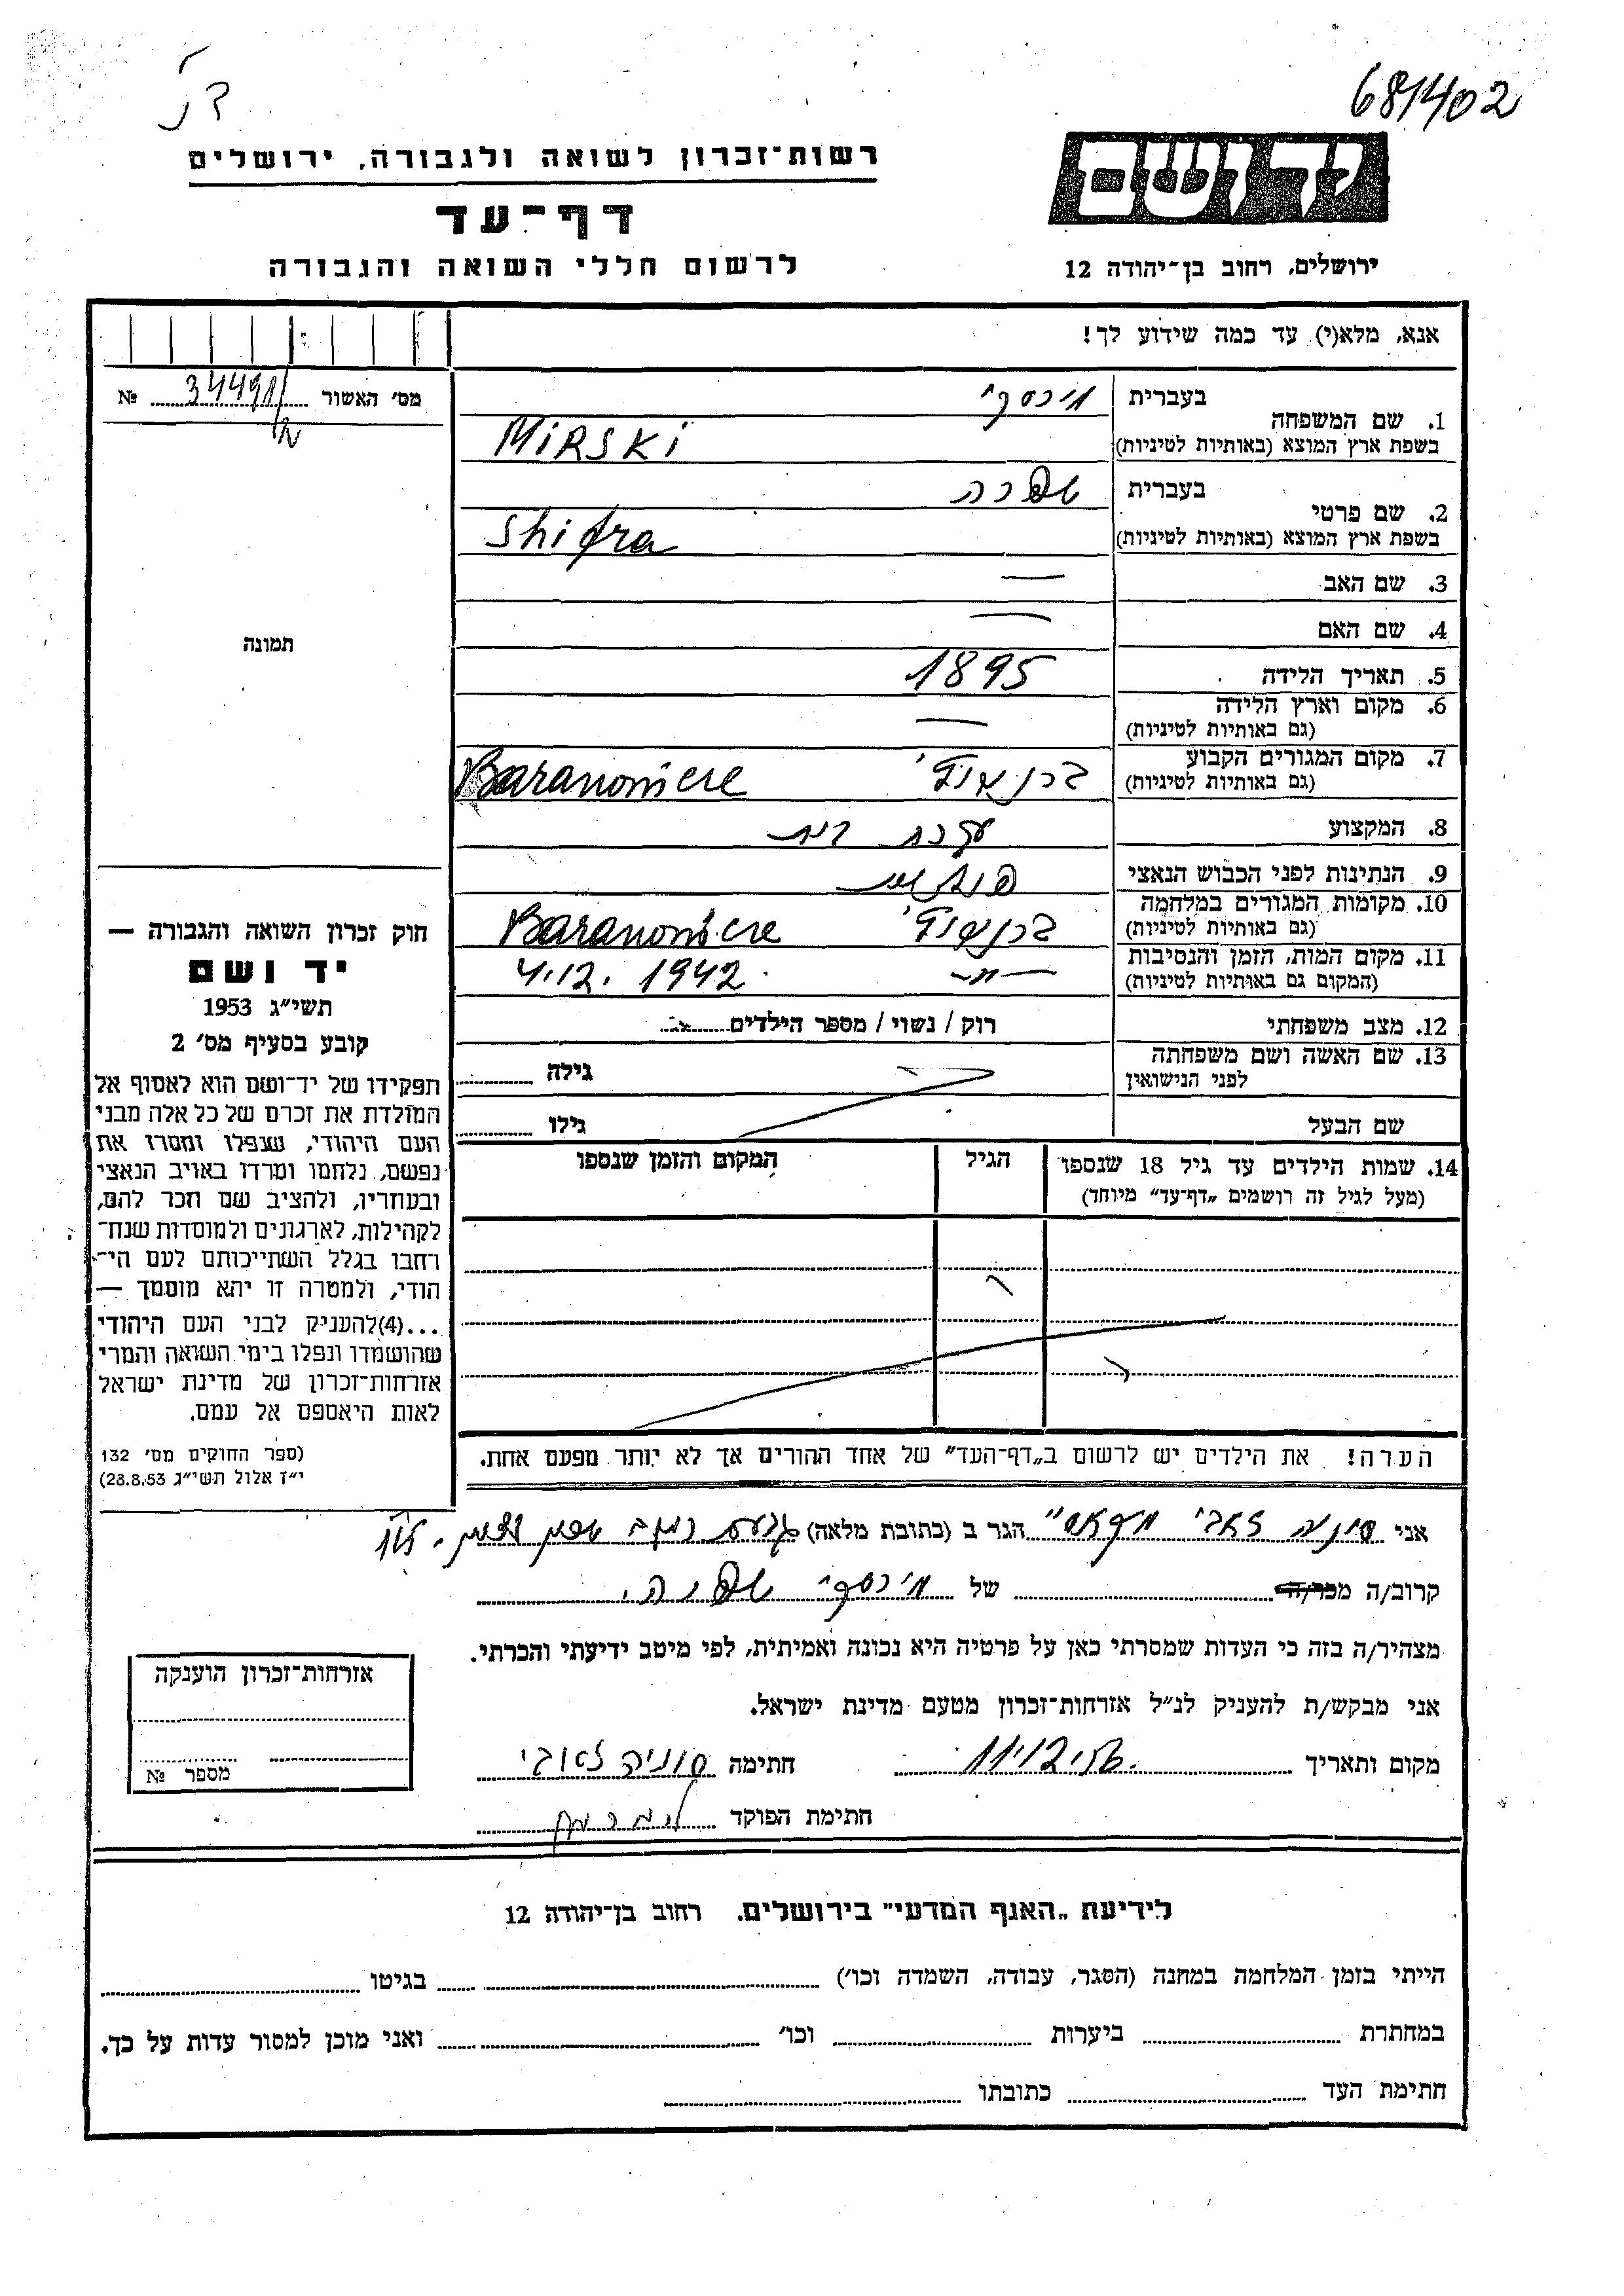 681402
יד ושם
ירושלים, רחוב בן־יהודה 12
רשות־זכרון לשואה ולגבורה, ירושלים
דף־עד
לרשום חללי השואה והגבורה
אנא, מלא(י) עד כמה שידוע לך!
מס׳ האשור № 34491/
1. שם המשפחה
בעברית מירסקי
בשפת ארץ המוצא (באותיות לטיניות) MIRSKI
2. שם פרטי
בעברית שפרה
בשפת ארץ המוצא (באותיות לטיניות) Shifra
3. שם האב —
4. שם האם —
5. תאריך הלידה 1895
6. מקום וארץ הלידה —
(גם באותיות לטיניות)
7. מקום המגורים הקבוע
(גם באותיות לטיניות)
8. המקצוע עקרת בית
9. הנתינות לפני הכבוש הנאצי פולנית
10. מקומות המגורים במלחמה
(גם באותיות לטיניות)
11. מקום המות, הזמן והנסיבות 4.12.1942
(המקום גם באותיות לטיניות)
12. מצב משפחתי רוק / נשוי / מספר הילדים
13. שם האשה ושם משפחתה גילה
לפני הנישואין
שם הבעל גילו
14. שמות הילדים עד גיל 18 שנספו
(מעל לגיל זה רושמים „דף־עד” מיוחד)
הגיל
המקום והזמן שנספו
הערה! את הילדים יש לרשום ב„דף־העד” של אחד ההורים אך לא יותר מפעם אחת.
תמונה
חוק זכרון השואה והגבורה —
יד ושם
תשי״ג 1953
קובע בסעיף מס׳ 2
תפקידו של יד־ושם הוא לאסוף אל
המולדת את זכרם של כל אלה מבני
העם היהודי, שנפלו ומסרו את
נפשם, נלחמו ומרדו באויב הנאצי
ובעוזריו, ולהציב שם וזכר להם,
לקהילות, לארגונים ולמוסדות שנח־
רחבו בגלל השתייכותם לעם הי־
הודי, ולמטרה זו יהא מוסמך —
...(4)להעניק לבני העם היהודי
שהושמדו ונפלו בימי השואה והמרי
אזרחות־זכרון של מדינת ישראל
לאות היאספם אל עמם.
(ספר החוקים מס׳ 132
י״ז אלול תשי״ג 28.8.53)
אני הגר ב (כתובת מלאה)
קרוב/ה מכר/ה של מירסקי שפרה
מצהיר/ה בזה כי העדות שמסרתי כאן על פרטיה היא נכונה ואמיתית, לפי מיטב ידיעתי והכרתי.
אני מבקש/ת להעניק לנ״ל אזרחות־זכרון מטעם מדינת ישראל.
מקום ותאריך חתימה סוניה
חתימת הפוקד
אזרחות־זכרון הוענקה
מספר №
לידיעת „האגף המדעי” בירושלים. רחוב בן־יהודה 12
הייתי בזמן המלחמה במחנה (הסגר, עבודה, השמדה וכו׳) בגיטו
במחתרת ביערות וכו׳ ואני מוכן למסור עדות על כך.
חתימת העד כתובתו